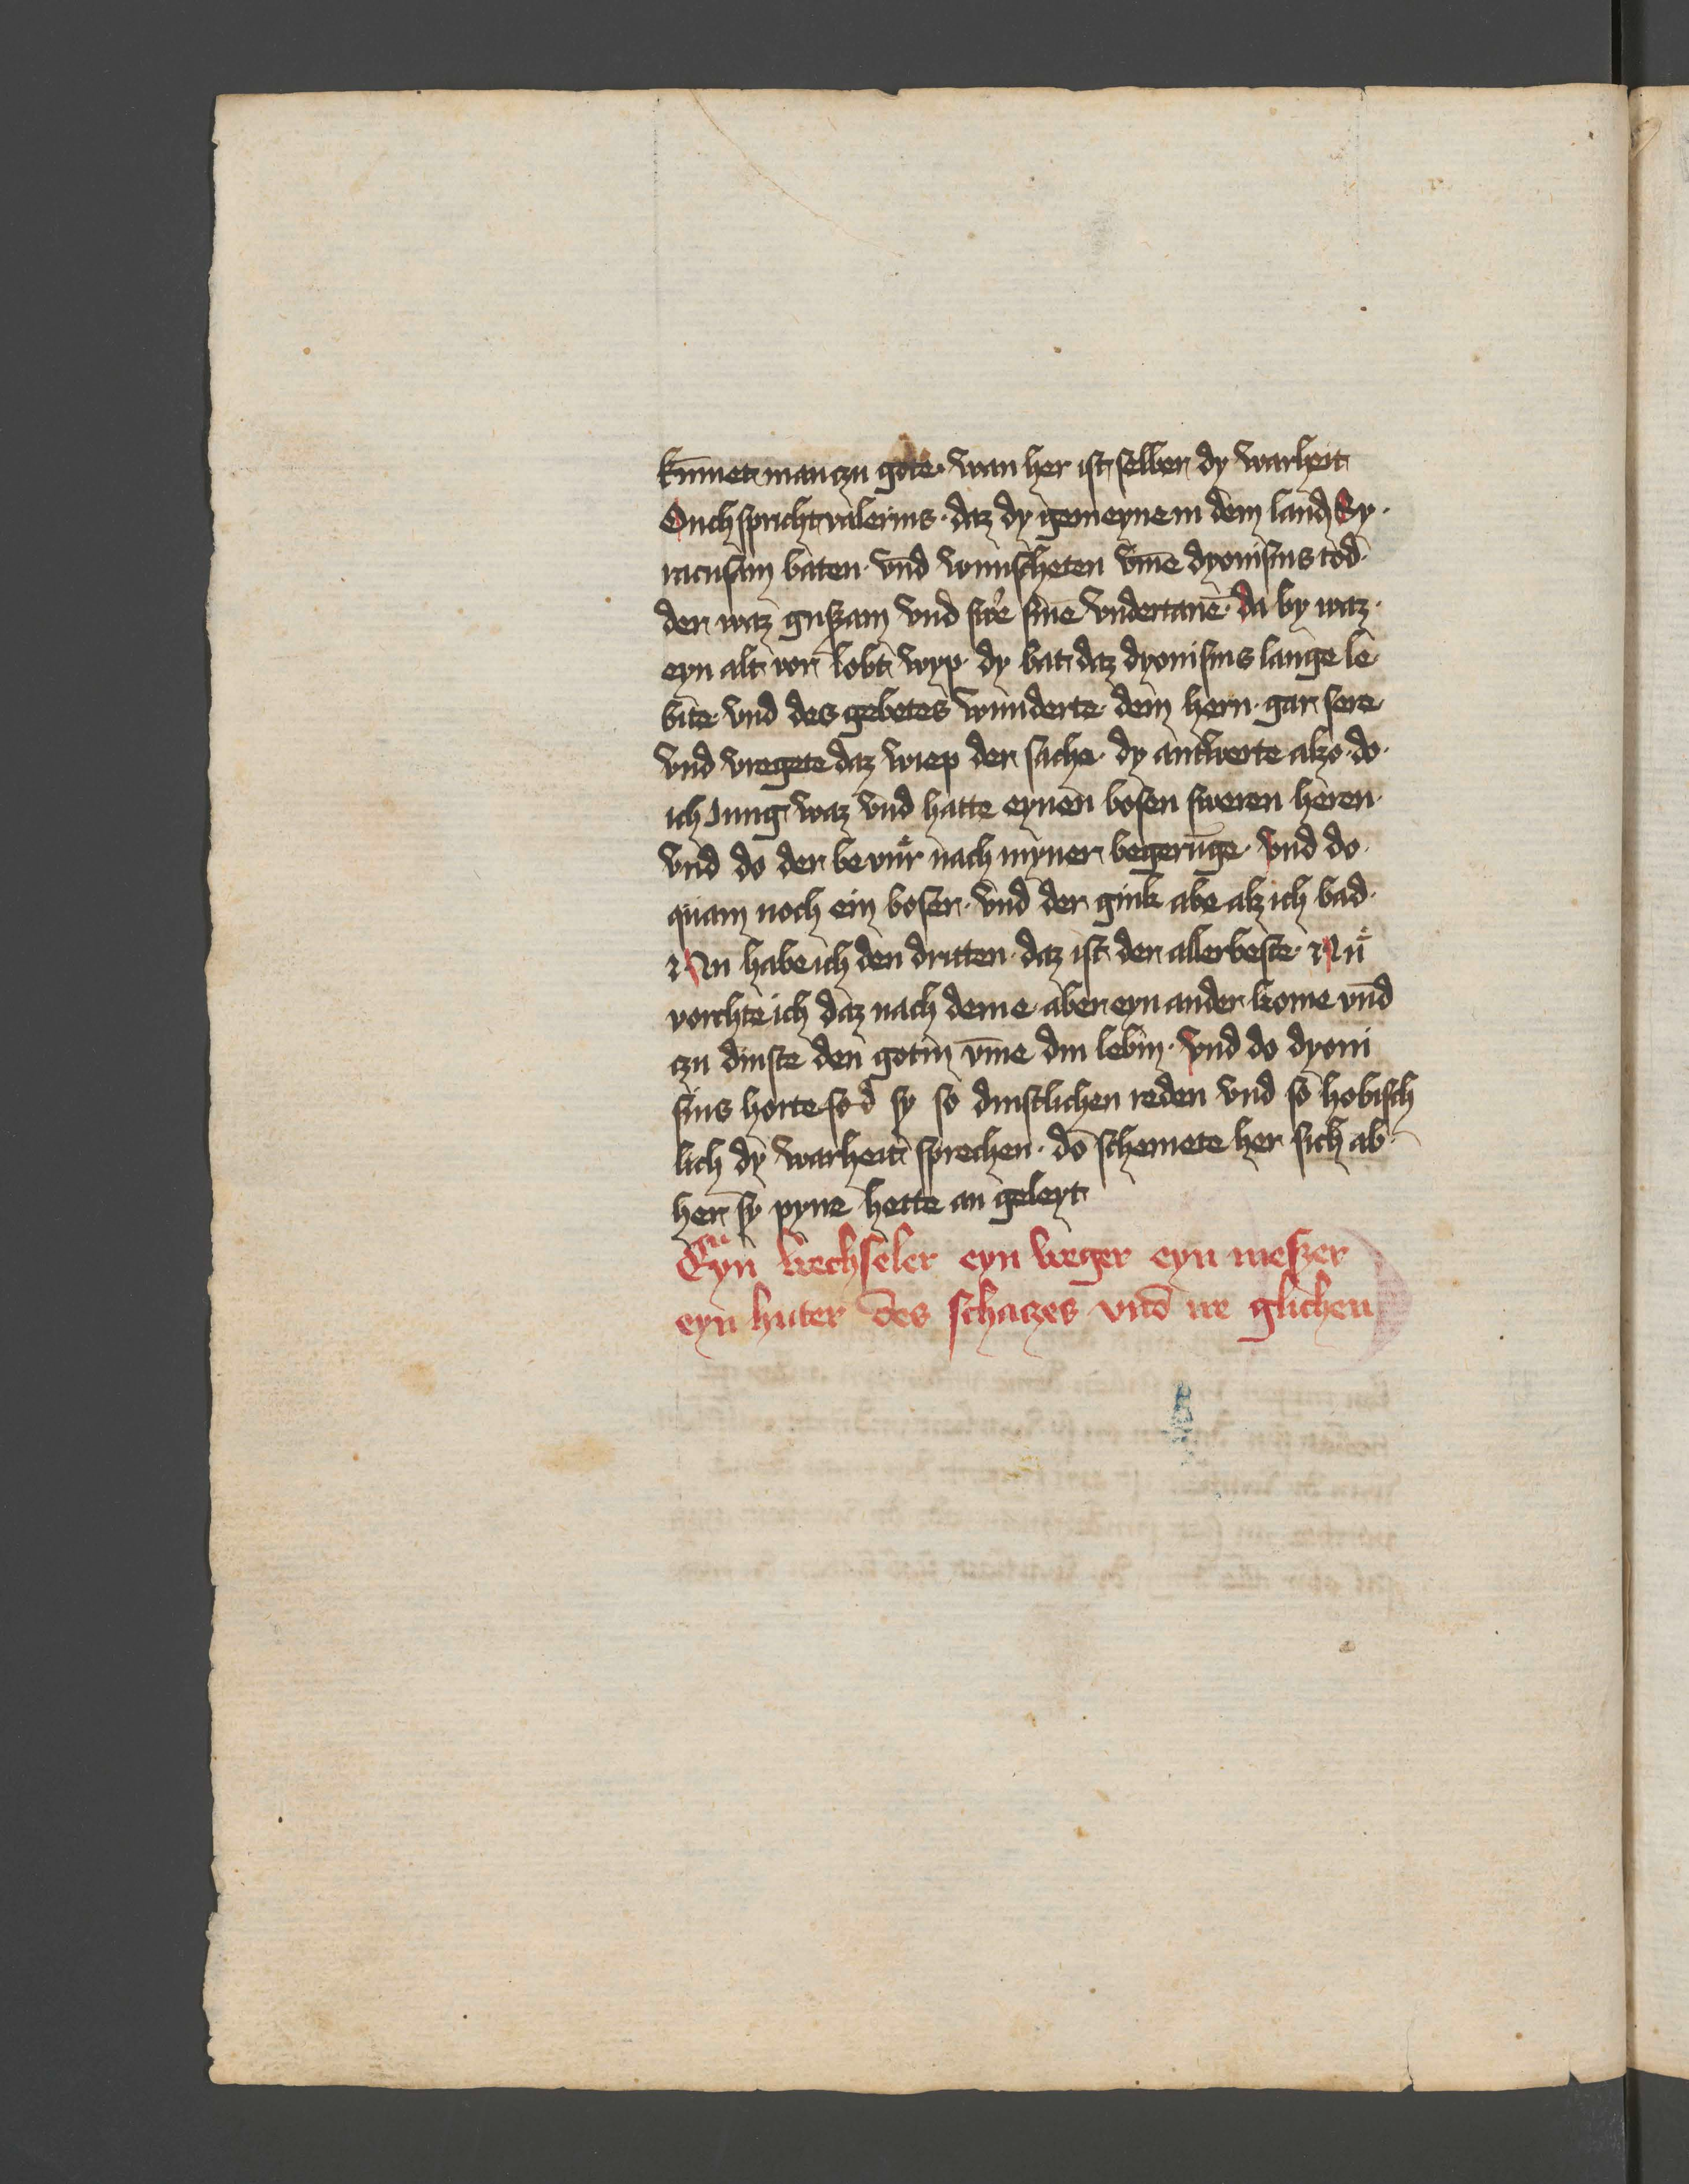 kūmet man zu gote · wan her ist selber dy warheit
Ouch spricht valerius · daz dy gemeyne in dem land Sy·
racusam baten · vnd wunscheten vm̄e dyonisius tod·
der waz gruszam vnd swe͛ sinē vndertanē · Da by waz·
eyn alt vor lobt wyp · dy bat daz dyonisius lange le
bite · vnd des gebetes wunderte dem hern · gar sere
vnd vregete daz wiep der sache · dy antwerte alzo · do·
ich Jung waz vnd hatte eynen bosen sweren heren·
vnd do der be vur nach myner begerūge · vnd do·
quam noch ein boser · vnd der gink abe alz ich bad·
Nu habe ich den dritten · daz ist der allerbeste · Nu
vorchte ich daz nach deme aber eyn ander kome vnd
zu dinste den gotin vm̄e din lebin · vnd do dyoni
sius horte sy so dinstlichen reden vnd so hobisch
lich dy warheit sprechen · do schemete her sich ab
her sy pyne hette an geleyt
Eyn wechseler eyn weger eyn meszer
eyn huter des schaczes vnd ire glichen